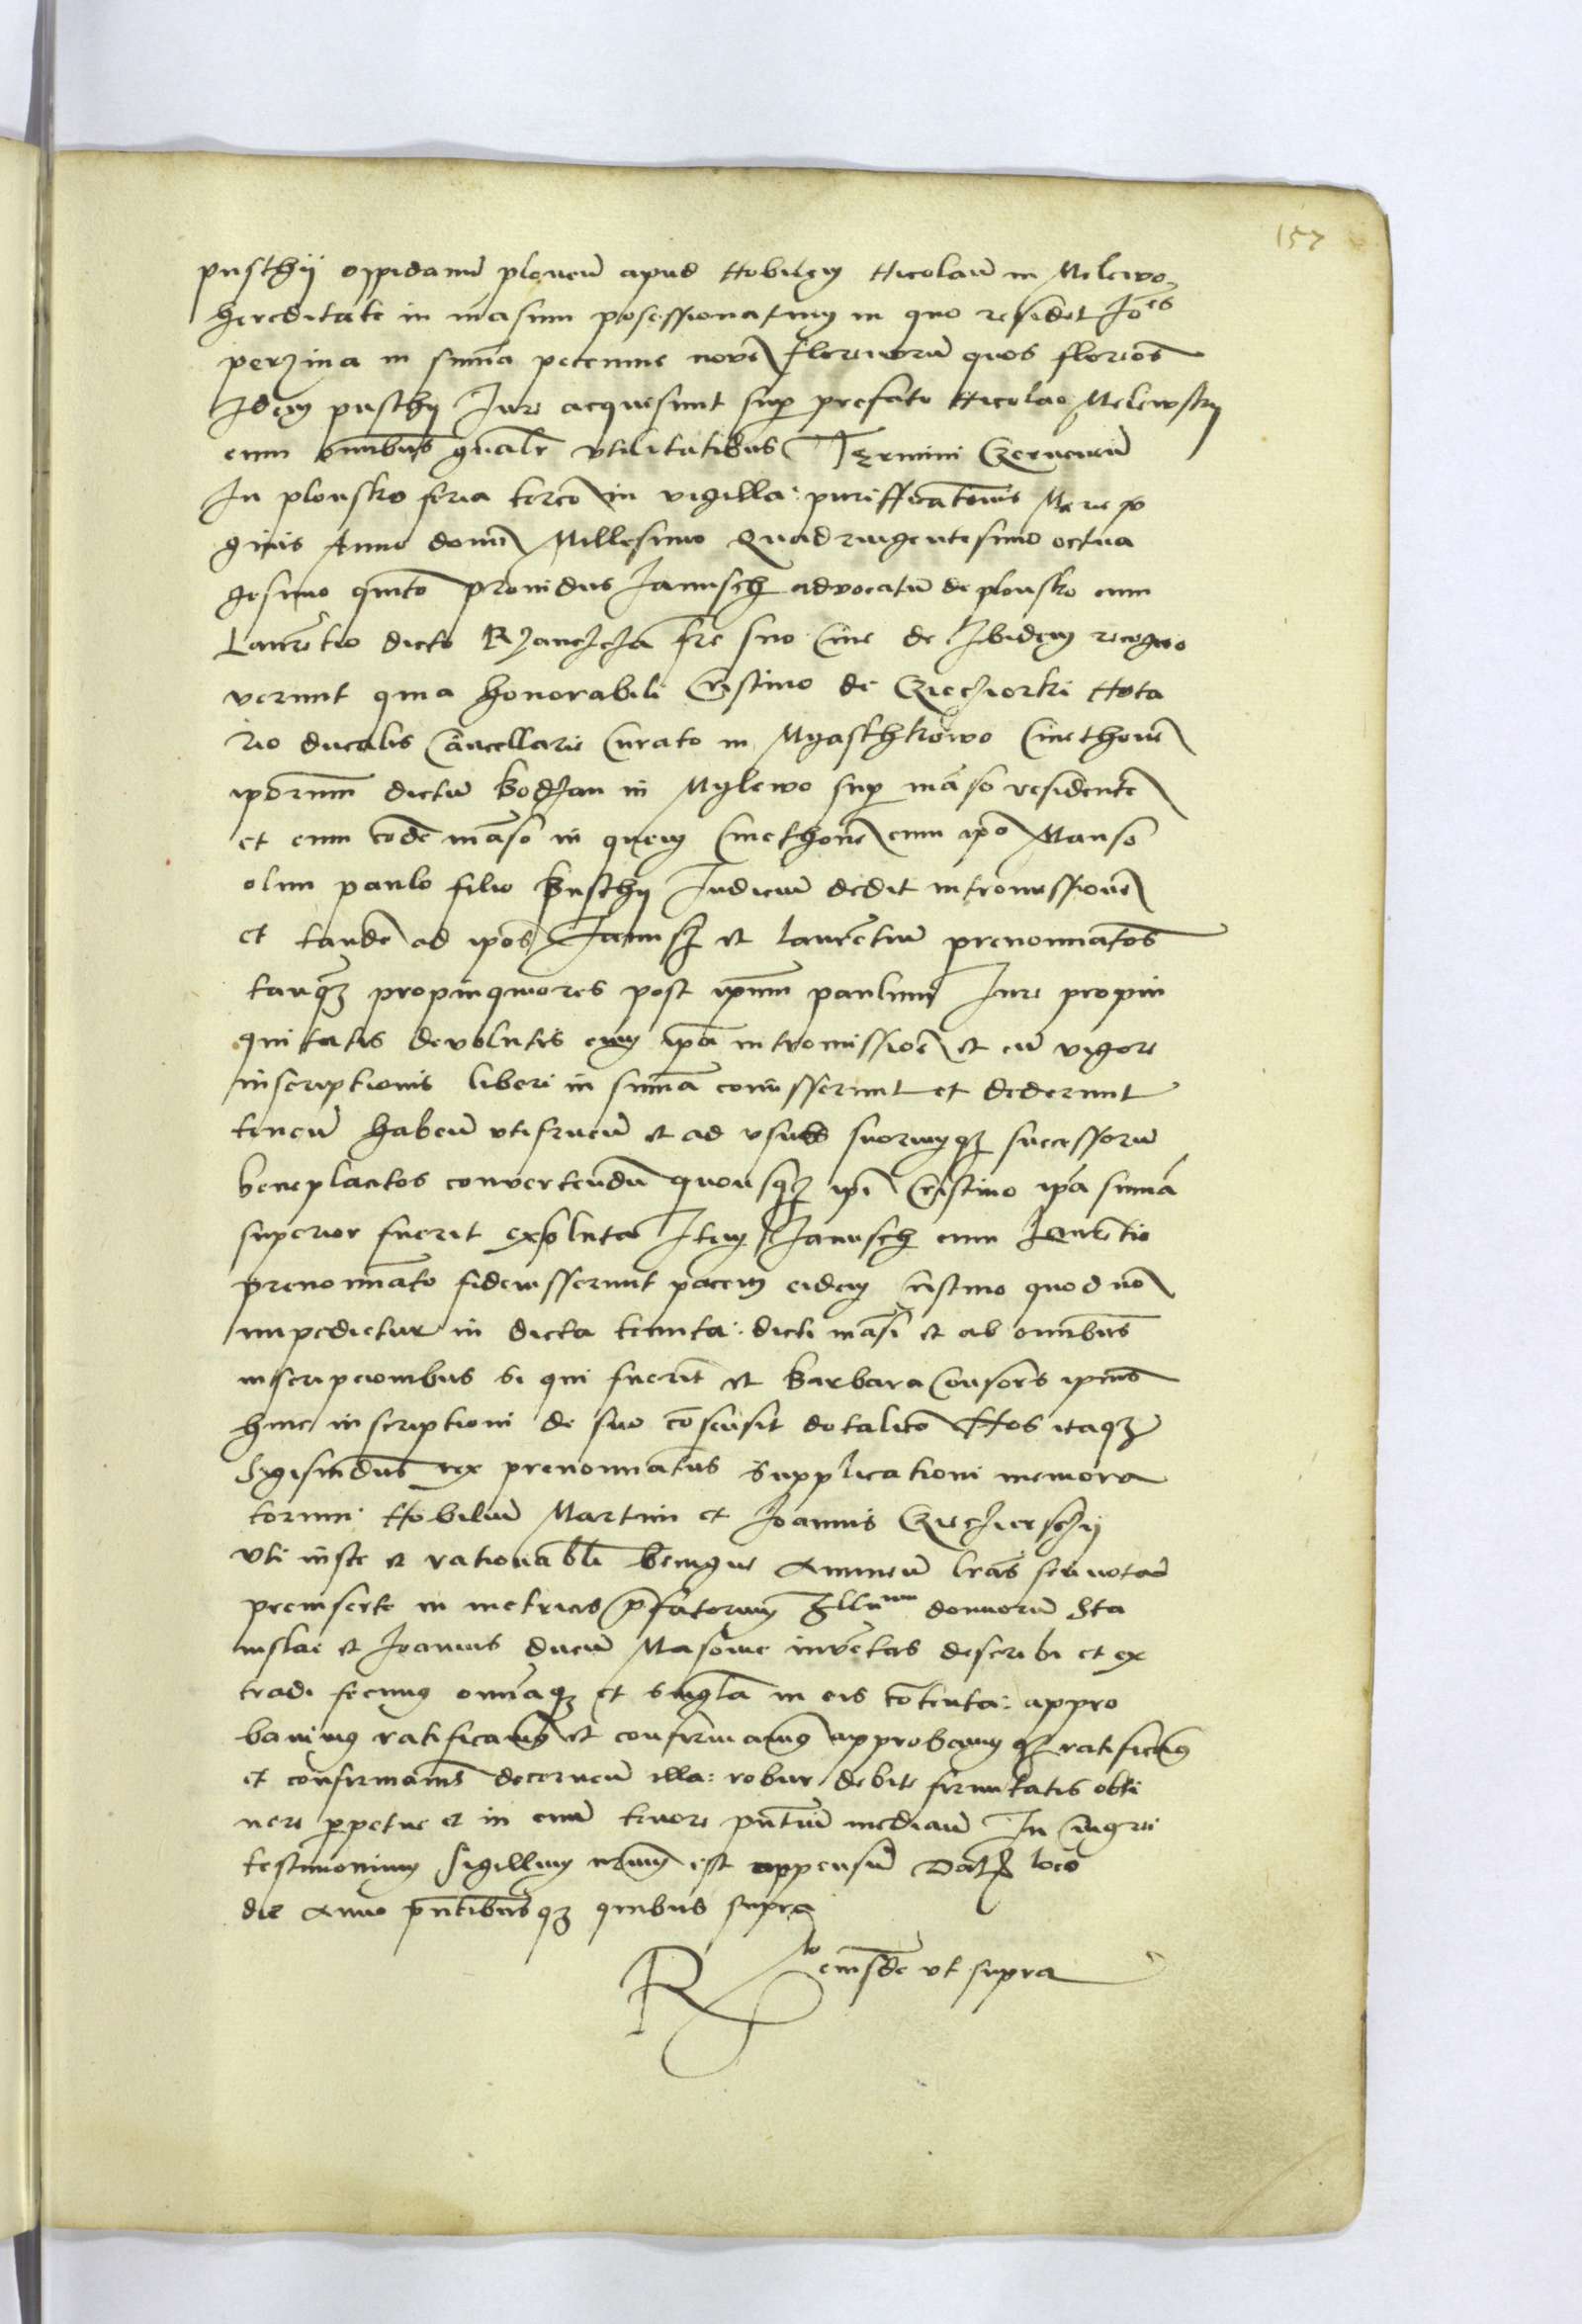 157
pusthÿ oppidanū ploneñ apud Nobilem Nicolaū in Milewo
hereditate in mãsum posessionatum in quo residet Joēs
perzina in sum̃a pecunie novē florenorū quos florēos
Idem pusthy Jure acquisiuit sup prefato Nicolao Milewsky
cum om̃ibus gñalr̃ vtilitatibus Termini Czerwen̄
In plonsko feria tercia in vigilia purifficatiõnis Marie vir
ginis Anno domı̃ Millesimo Quadringentesimo octua
gesimo quinto prouidus Janusch advocatus de plonsko cum
Laurẽtio dicto fr̃e suo Ciue de Ibidem recogno
verunt quia honorabili Cristino de Cziecziorki Nota
rio ducalis Cãncellarie Curato in Myasthkowo Cmethonē
ip̃orum dictū kodzan in Mylewo sup mãso residentē
et cum eodē mãso in quem Cmethonē cum ip̃o Manso
olim paulo filio pusthÿ Judiciū dedit intromissionē
et tandē ad ip̃os Janusz et laurẽtium prenomĩatos
tanq̃ꝫ propinquiores post ip̃um paulum Jure propin
quitatis devolutis cum ip̃a intromissiõe et cū vigore
inscriptionis liberi in sum̃a com̃isserunt et dederunt
teneñ habeñ vtifrueñ et ad vsus suorumqꝫ successorū
beneplacitos convertendū quousqꝫ ip̃i Cristino ip̃a sum̃a
superior fuerit exsoluta Item Janusch cum Laurẽtio
prenomı̃ato fideiusserunt pacem eidem Cristino quod nō
impedietur in dicta tenuta dicti mãsi et ab om̃ibus
inscripcionibus si qui fuerit et Barbara Consors ip̃ius
huic inscriptioni de suo cõsensit dotalicio Nos itaqꝫ
Sigismũdus rex prenomı̃atus supplicationi memora
torum Nobiliū Martini et Joannis Cziecziersky
vti iuste et rationabli benigne Annueñ lr̃as seu notas
preinserte in metricis p̃fatorum Illr̃ium dominorū Sta
nislai et Joannis ducū Masouie inuẽtas describi et ex
tradi fecimus om̃iaqꝫ et singl̃a in eis cõtenta appro
bauimus ratificauimus et confirmauimus approbamusqꝫ ratificamus
et confirmamus decerneñ illa robur debite firmitatis obti
nere ppetue et in euū tenore pñtium mediañ In cuius rei
testimonium sigillum nr̃um est appensū Dat̃ loco
die Anno pñtibusqꝫ quibus supra
Rlo eiusdē vt supra